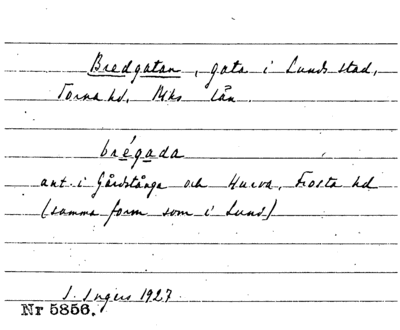 Bredgatan, gata i Lunds stad,
Torna hd, Mhs län.
brégada
ant. i Gårdstånga och Hurva, Frosta hd
(samma form som i Lund)
I. Ingers 1927.
Nr 5856.